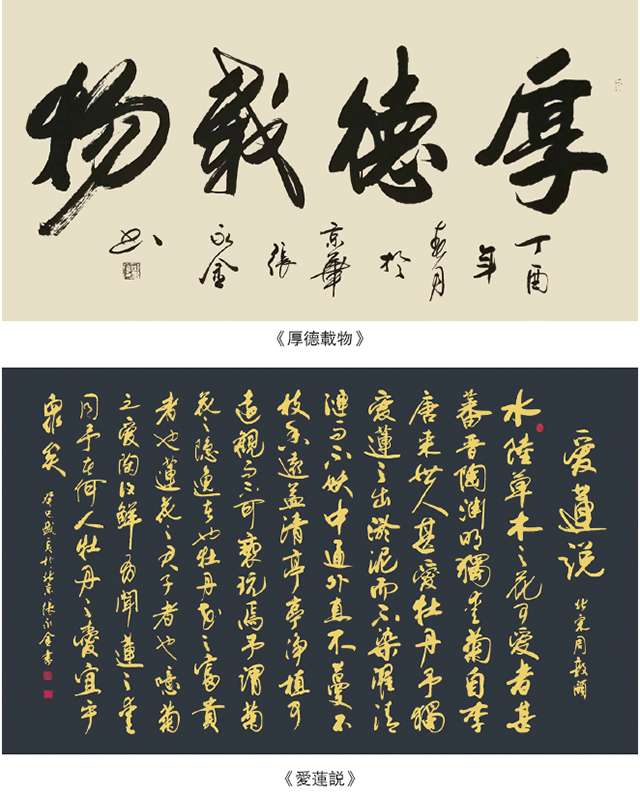 厚德載物
丁酉
年
春月
於
京華
張
永金
書
《厚德載物》
愛蓮説
北宋周敦頤
水陸草木之花可愛者甚
蕃晋陶渊明獨愛菊自李
唐来世人甚愛牡丹予獨
愛蓮之出淤泥而不染濯清
漣而不妖中通外直不蔓不
枝香遠益清亭亭净植可
遠視而不可褻玩焉予謂菊
花之隐逸者也牡丹花之富貴
者也蓮花之君子者也噫菊
之愛陶後鮮有聞蓮之愛
同予者何人牡丹之愛宜乎
衆矣
癸巳歲於北京張永金書
《愛蓮説》